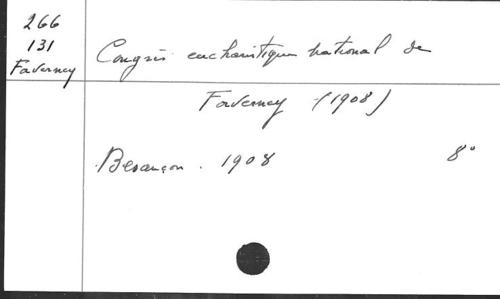 266
131
Faverney
Congrès eucharistique national de
Faverney (1908)
Besançon. 1908 8°